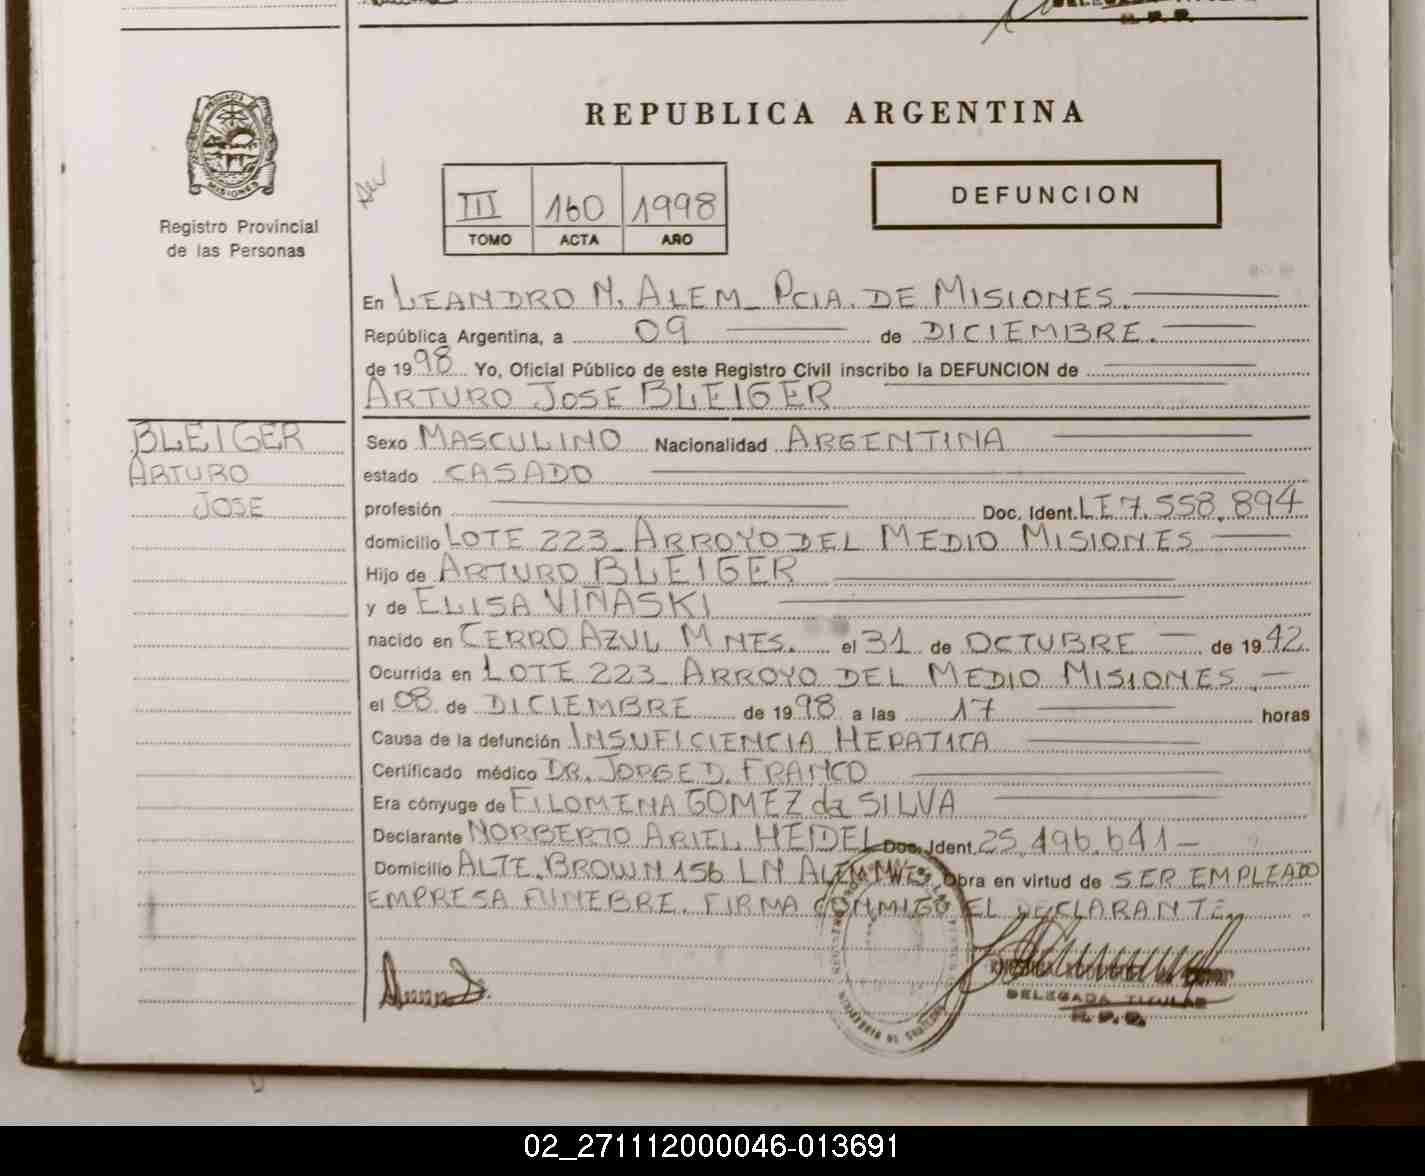 REPUBLICA ARGENTINA
Registro Provincial
de las Personas
III 160 1998
TOMO ACTA AÑO
DEFUNCION
En LEANDRO N. ALEM_ PCIA. DE MISIONES.
República Argentina, a 09 de DICIEMBRE.
de 1998 Yo, Oficial Público de este Registro Civil inscribo la DEFUNCION de
ARTURO JOSE BLEIGER
BLEIGER
ARTURO
JOSE
Sexo MASCULINO Nacionalidad ARGENTINA
estado CASADO
profesión Doc. Ident. LE 7.558.894
domicilio LOTE 223_ ARROYO DEL MEDIO MISIONES
Hijo de ARTURO BLEIGER
y de ELISA VINASKI
nacido en CERRO AZUL MNES. el 31 de OCTUBRE de 1942
Ocurrida en LOTE 223_ ARROYO DEL MEDIO MISIONES.
el 08 de DICIEMBRE de 1998 a las 17 horas
Causa de la defunción INSUFICIENCIA HEPATICA
Certificado médico DR. JORGE D. FRANCO
Era cónyuge de FILOMENA GOMEZ da SILVA
Declarante NORBERTO ARIEL HEIDEL Doc. Ident. 25.496.641
Domicilio ALTE. BROWN 156 LN ALEM MNES Obra en virtud de SER EMPLEADO
EMPRESA FUNEBRE. FIRMA CONMIGO EL DECLARANTE
DELEGADA TITULAR
R. P. P.
02_271112000046-013691